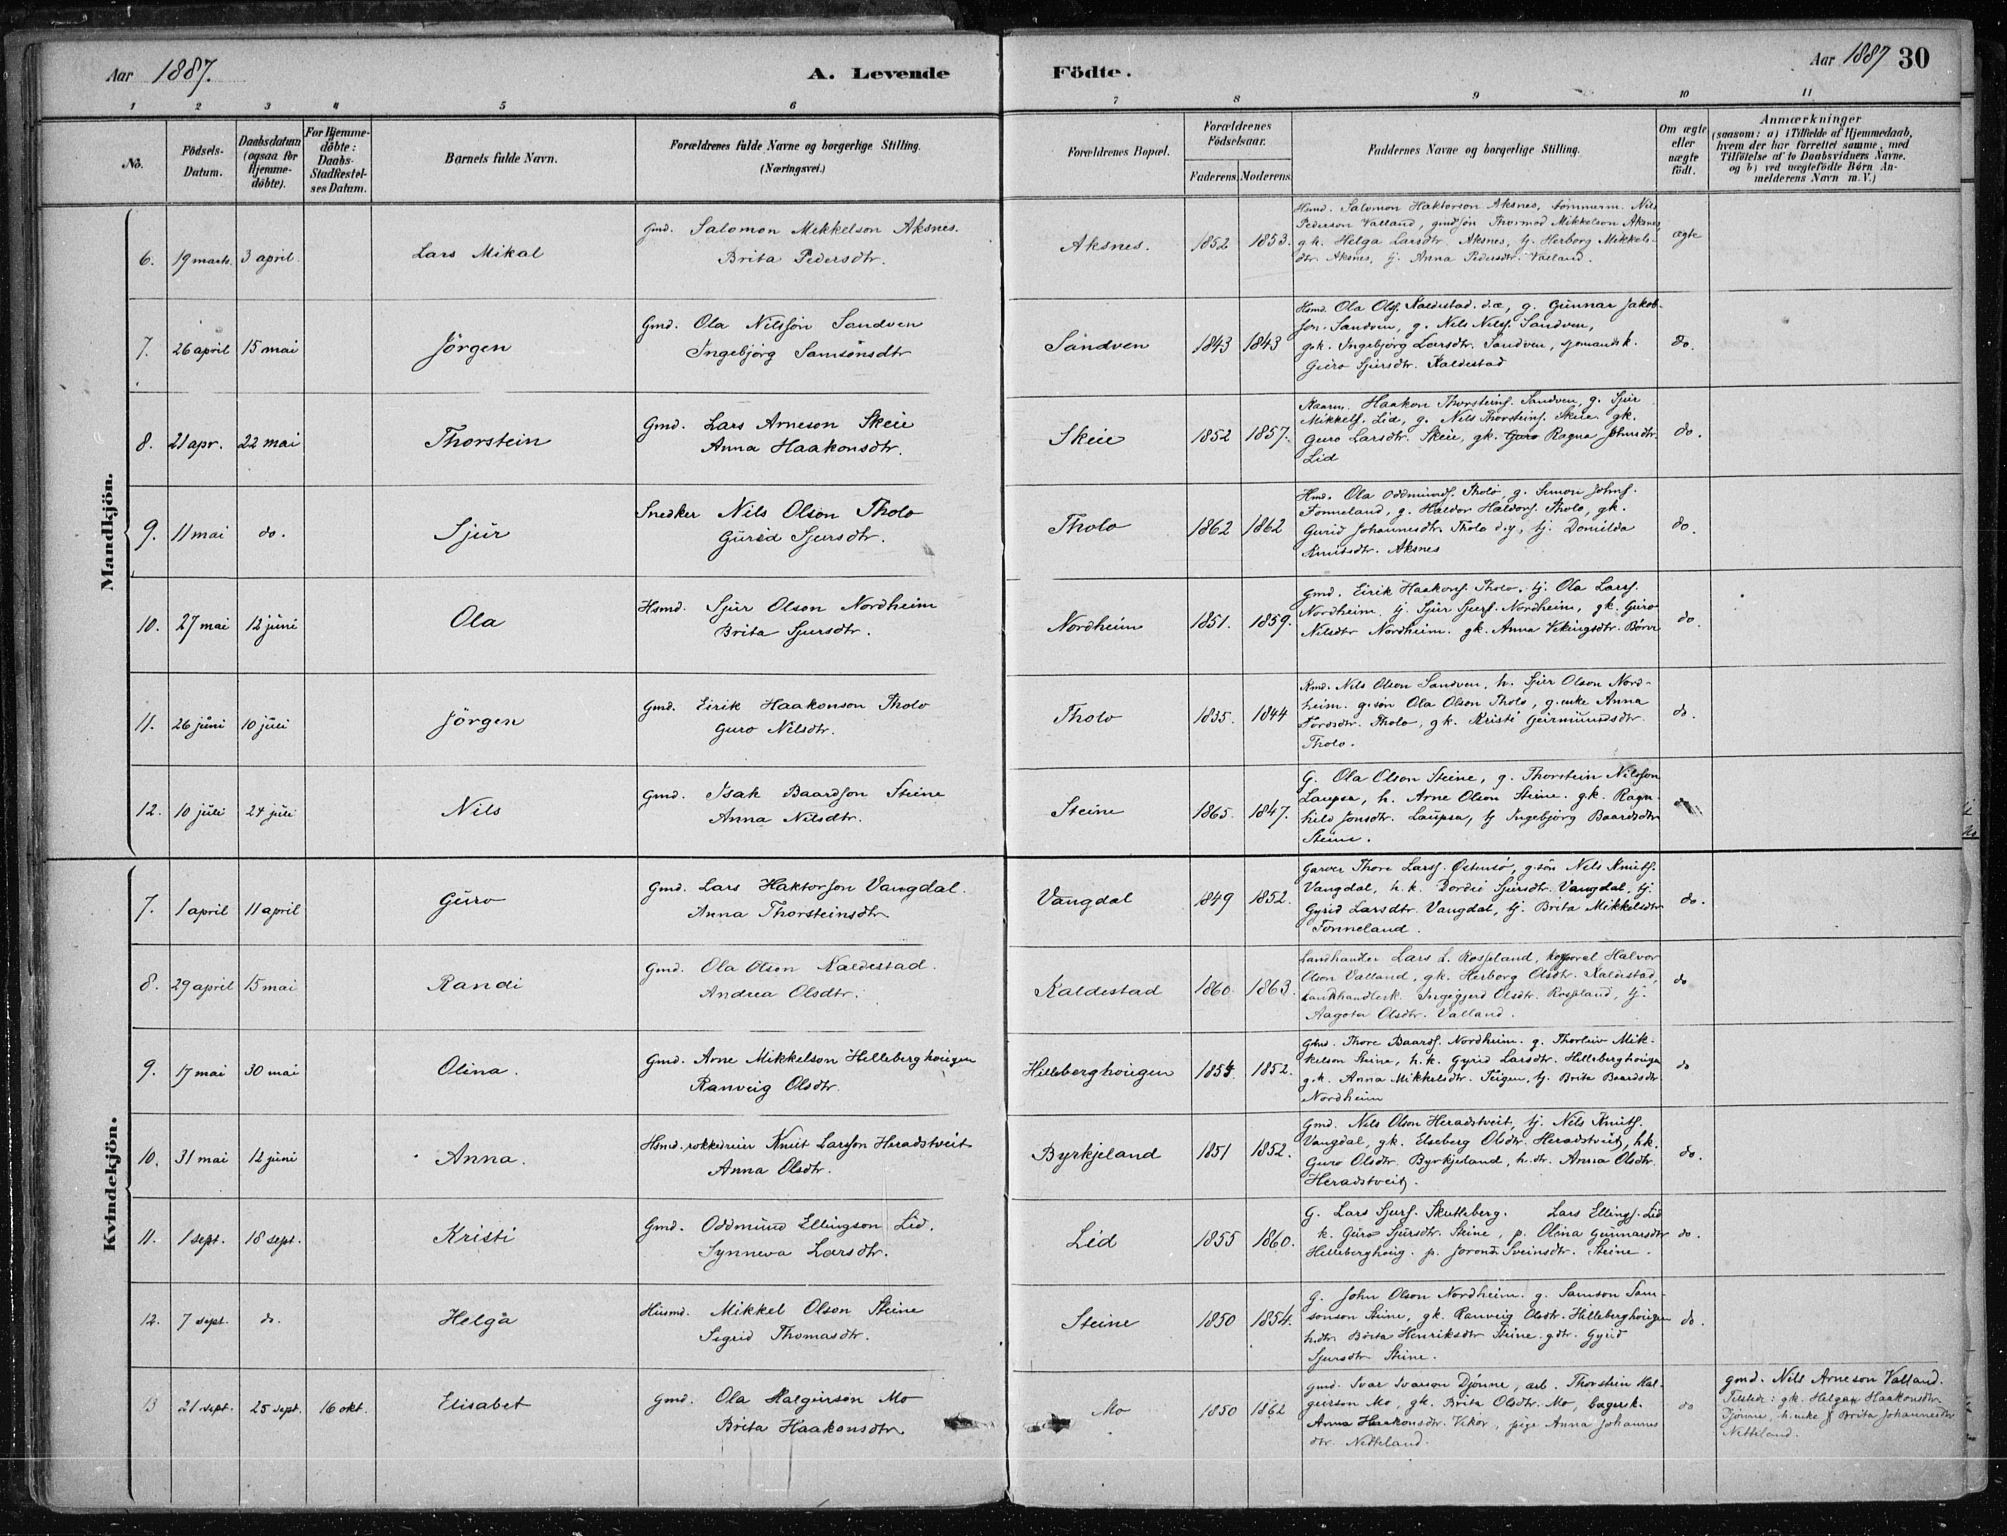 Aar 1887.
A. Levende Födte.
Aar 1887 30
1 2 3 4 5 6 7 8 9 10 11
No.
Födsels-Datum.
Daabsdatum (ogsaa for Hjemme-döbte).
For Hjemme-döbte: Daabs-Stadfæstelses Datum.
Barnets fulde Navn.
Forældrenes fulde Navne og borgerlige Stilling. (Næringsvei.)
Forældrenes Bopæl.
Forældrenes Födselsaar.
Faderens. Moderens.
Faddernes Navne og borgerlige Stilling.
Om ægte eller uægte födt.
Anmærkninger
(saasom: a) i Tilfælde af Hjemmedaab,
hvem der har forrettet samme, med
Tilföielse af to Daabsvidners Navne.
og b) ved uægtefödte Börn An-
melderens Navn m. V.)
Mandkjön.
6. 19 marts. 3 april. Lars Mikal
Gmd. Salomon Mikkelson Aksnes.
Brita Pedersdtr.
Aksnes. 1852 1853.
Hsmd. Salomon Haktorson Aksnes, tömmerm. Nils
Pederson Valland, gmdsön Thormod Mikkelson Aksnes,
g.k. Helga Larsdtr. Aksnes, tj. Herborg Mikkels-
dtr. Aksnes, tj. Anna Pedersdtr. Valland.
ægte
7. 26 april 15 mai Jörgen
Gmd. Ola Nilsson Sandven
Ingebjörg Samsonsdtr
Sandven 1843 1843
Hsmd. Ola Olss. Kaldestad. d.æ, g. Gunnar Jakob-
son. Sandven, g. Nils Nilss. Sandven,
g.k. Ingebjörg Larsdtr. Sandven, sjömandsk.
Guro Sjursdtr. Kaldestad
do.
8. 21 apr. 22 mai Thorstein
Gmd. Lars Arneson Skeie
Anna Haakonsdtr.
Skeie 1852 1857.
Haakon Thorsteins. Sandven, g. Sjur
Mikkels. Lid, g. Nils Thorsteins. Skeie. gk.
Guro Larsdtr. Skeie, gk. Guro Ragna Johnsdtr.
Lid
do.
9. 11 mai do. Sjur
Snedker Nils Olson Tholo
Gurid Sjursdtr.
Tholo 1862 1862
Hmd. Ola Oddmunds. Tholo, g. Simon Johns.
Fonneland, g. Haldor Haldors. Tholo, gk.
Gurid Johannesdtr. Tholo d.y, tj. Domilda
Knutsdtr. Aksnes
do.
10. 27 mai 12 juni Ola
Hsmd. Sjur Olson Nordheim
Brita Sjursdtr.
Nordheim 1851. 1859.
Gmd. Eirik Haakons. Tholo. tj. Ola Larss.
Nordheim, tj. Sjur Sjurs. Nordheim, gk. Guro
Nilsdtr Nordheim. gk. Anna Vikingsdtr. Börve
do.
11. 26 juni 10 juli Jörgen
Gmd. Eirik Haakonson Tholo
Guro Nilsdtr.
Tholo 1835. 1844
Nils Olson Sandven, h. Sjur Olson Nord-
heim. g.sön Ola Olson Tholo, g.enke Anna
Tholo, gk. Kristi Geirmundsdtr.
Tholo.
do.
12. 10 juli 24 juli Nils
Gmd. Isak Baardson Steine
Anna Nilsdtr.
Steine 1865. 1847.
G. Ola Olson Steine, g. Thorstein Nilsson
Laupsa, h. Arne Olson Steine. gk. Ragn-
hild Jonsdtr. Laupsa, tj Ingebjörg Baardsdtr
Steine.
Kvindekjön.
7. 1 april 11 april Guro
Gmd. Lars Haktorson Vangdal.
Anna Thorsteinsdtr
Vangdal 1849 1852.
Garver Thore Larss. Östensö, g.sön Nils Knuts.
Vangdal, h.k. Dordei Sjursdtr. Vangdal, tj.
Gyrid Larsdtr. Vangdal, tj. Brita Mikkelsdtr
Fonneland.
do.
8. 29 april 15 mai Randi
Gmd. Ola Olson Kaldestad.
Andrea Olsdtr.
Kaldestad 1860 1863.
Landhandler Lars L. Rosseland, korporal Halvor
Olson Valland, gk. Herborg Olsdtr. Kaldestad,
Landhandlerk. Ingegjerd Olsdtr. Rosseland, tj.
Aagota Olsdtr. Valland.
do
9. 17 mai 30 mai Olina.
Gmd. Arne Mikkelson Helleberghougen
Ranveig Olsdtr.
Helleberghougen 1854. 1852.
Gmd. Thore Baards. Nordheim. g. Thorleiv Mik-
kelson Steine, h.k. Gyrid Larsdtr. Helleberghougen
g.k. Anna Mikkelsdtr. Teigen, tj. Brita Baardsdtr
Nordheim
do
10. 31 mai 12 juni Anna.
Hsmd. rokkedreier Knut Larsson Heradstveit
Anna Olsdtr.
Byrkjeland 1851 1852.
Gmd. Nils Olson Heradstveit, tj. Nils Knuts.
Vangdal, gk. Elseberg Olsdtr. Heradstveit, h.k.
Guro Olsdtr. Byrkjeland, h.dtr. Anna Olsdtr.
Heradstveit.
do.
11. 1 sept. 18 sept. Kristi
Gmd. Oddmund Ellingson Lid.
Synneva Larsdtr.
Lid 1855 1860.
G. Lars Sjurs. Skutleberg. Lars Ellings. Lid
k. Guro Sjursdtr. Steine, p. Olina Gunnarsdtr
Helleberghoug. p. Jorond Sveinsdtr. Steine.
do.
12. 7 sept. do. Helga
Husmd. Mikkel Olson Steine
Sigrid Thomasdtr.
Steine 1850 1854.
G. John Olson Nordheim. g. Samson Sam-
sonson Steine, gk. Ranveig Olsdtr. Helleberghougen
h.dtr. Brita Henriksdtr Steine. gdtr. Gyrid
Sjursdtr Steine.
do.
13 21 sept. 25 sept. 16 okt. Elisabet
Gmd. Ola Halgeirson Mo
Brita Haakonsdtr
Mo 1850 1862
Gmd. Ivar Ivarson Djönne, arb. Thorstein Hal-
geirson Mo, gk. Brita Olsdtr. Mo, bagerk.
Anna Haakonsdtr. Vikör, pige Anna Johannes
dtr. Netteland.
do
gmd. Nils Arneson Valland.
Tilstede: gk. Helga Haakonsdtr
Djönne, h.enke Brita Johannesdtr
Netteland.